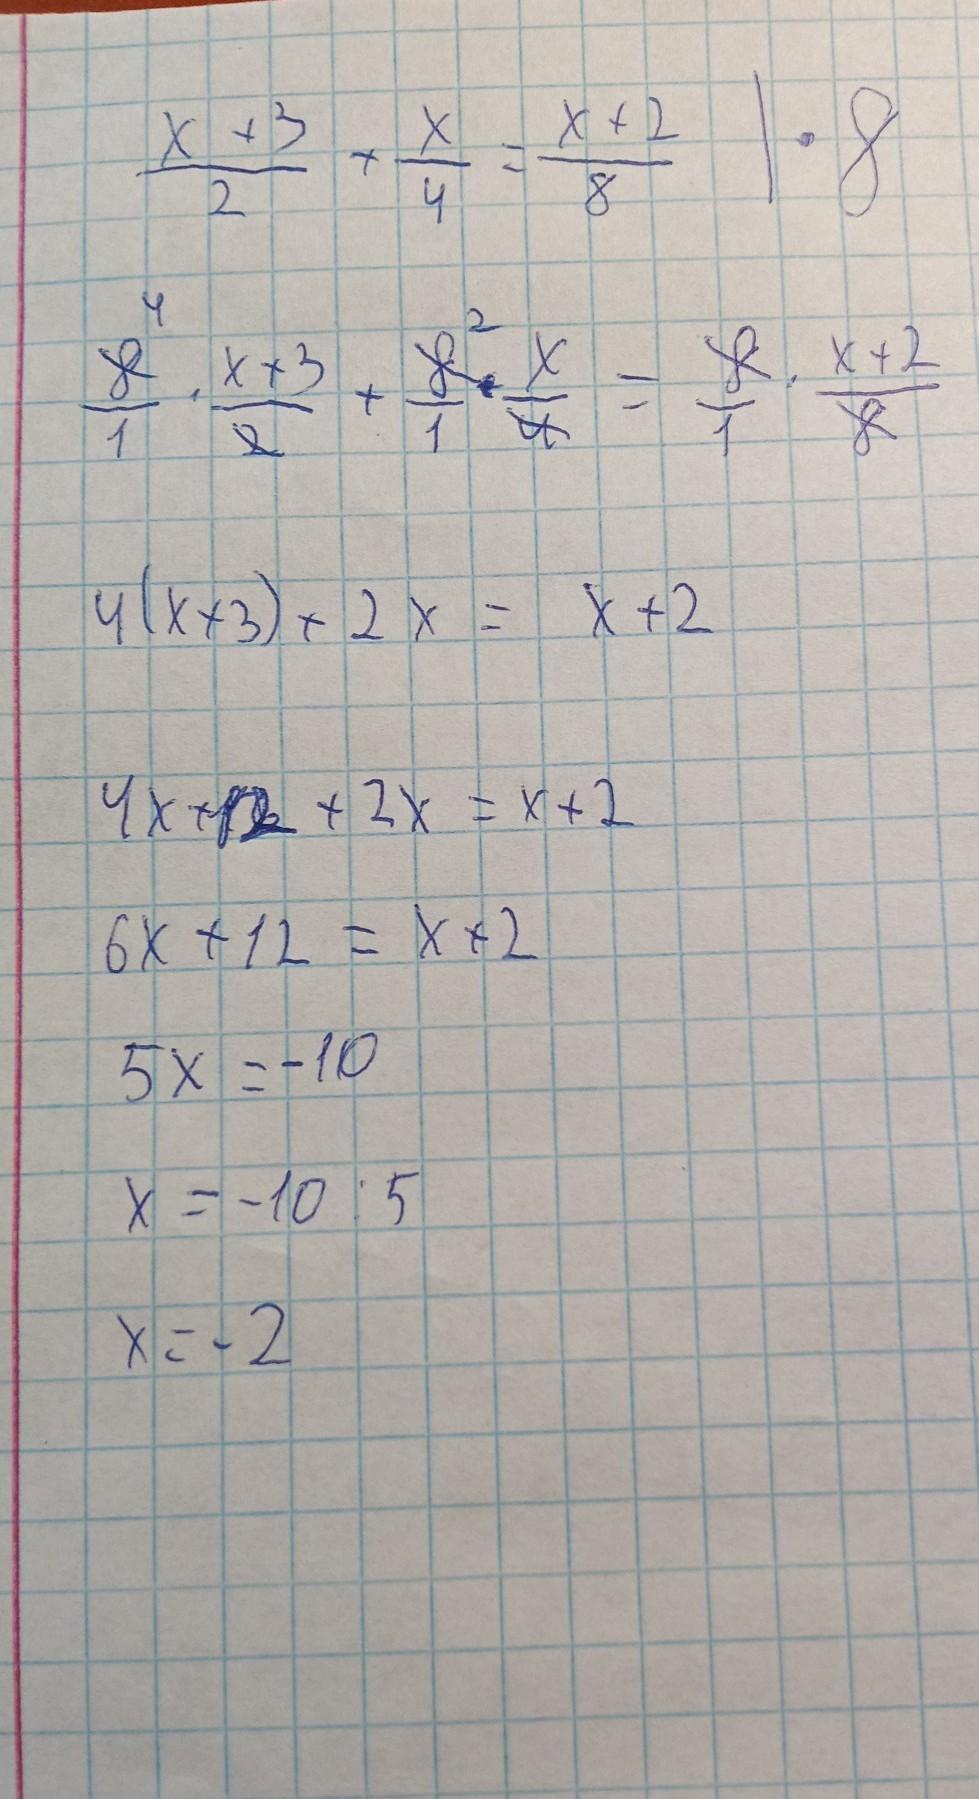 (x+3)/2 + x/4 = (x+2)/8 | · 8
8⁴/1 · (x+3)/2 + 8²/1 · x/4 = 8/1 · (x+2)/8
4(x+3) + 2x = x+2
4x+12 + 2x = x+2
6x+12 = x+2
5x = -10
x = -10 : 5
x = -2